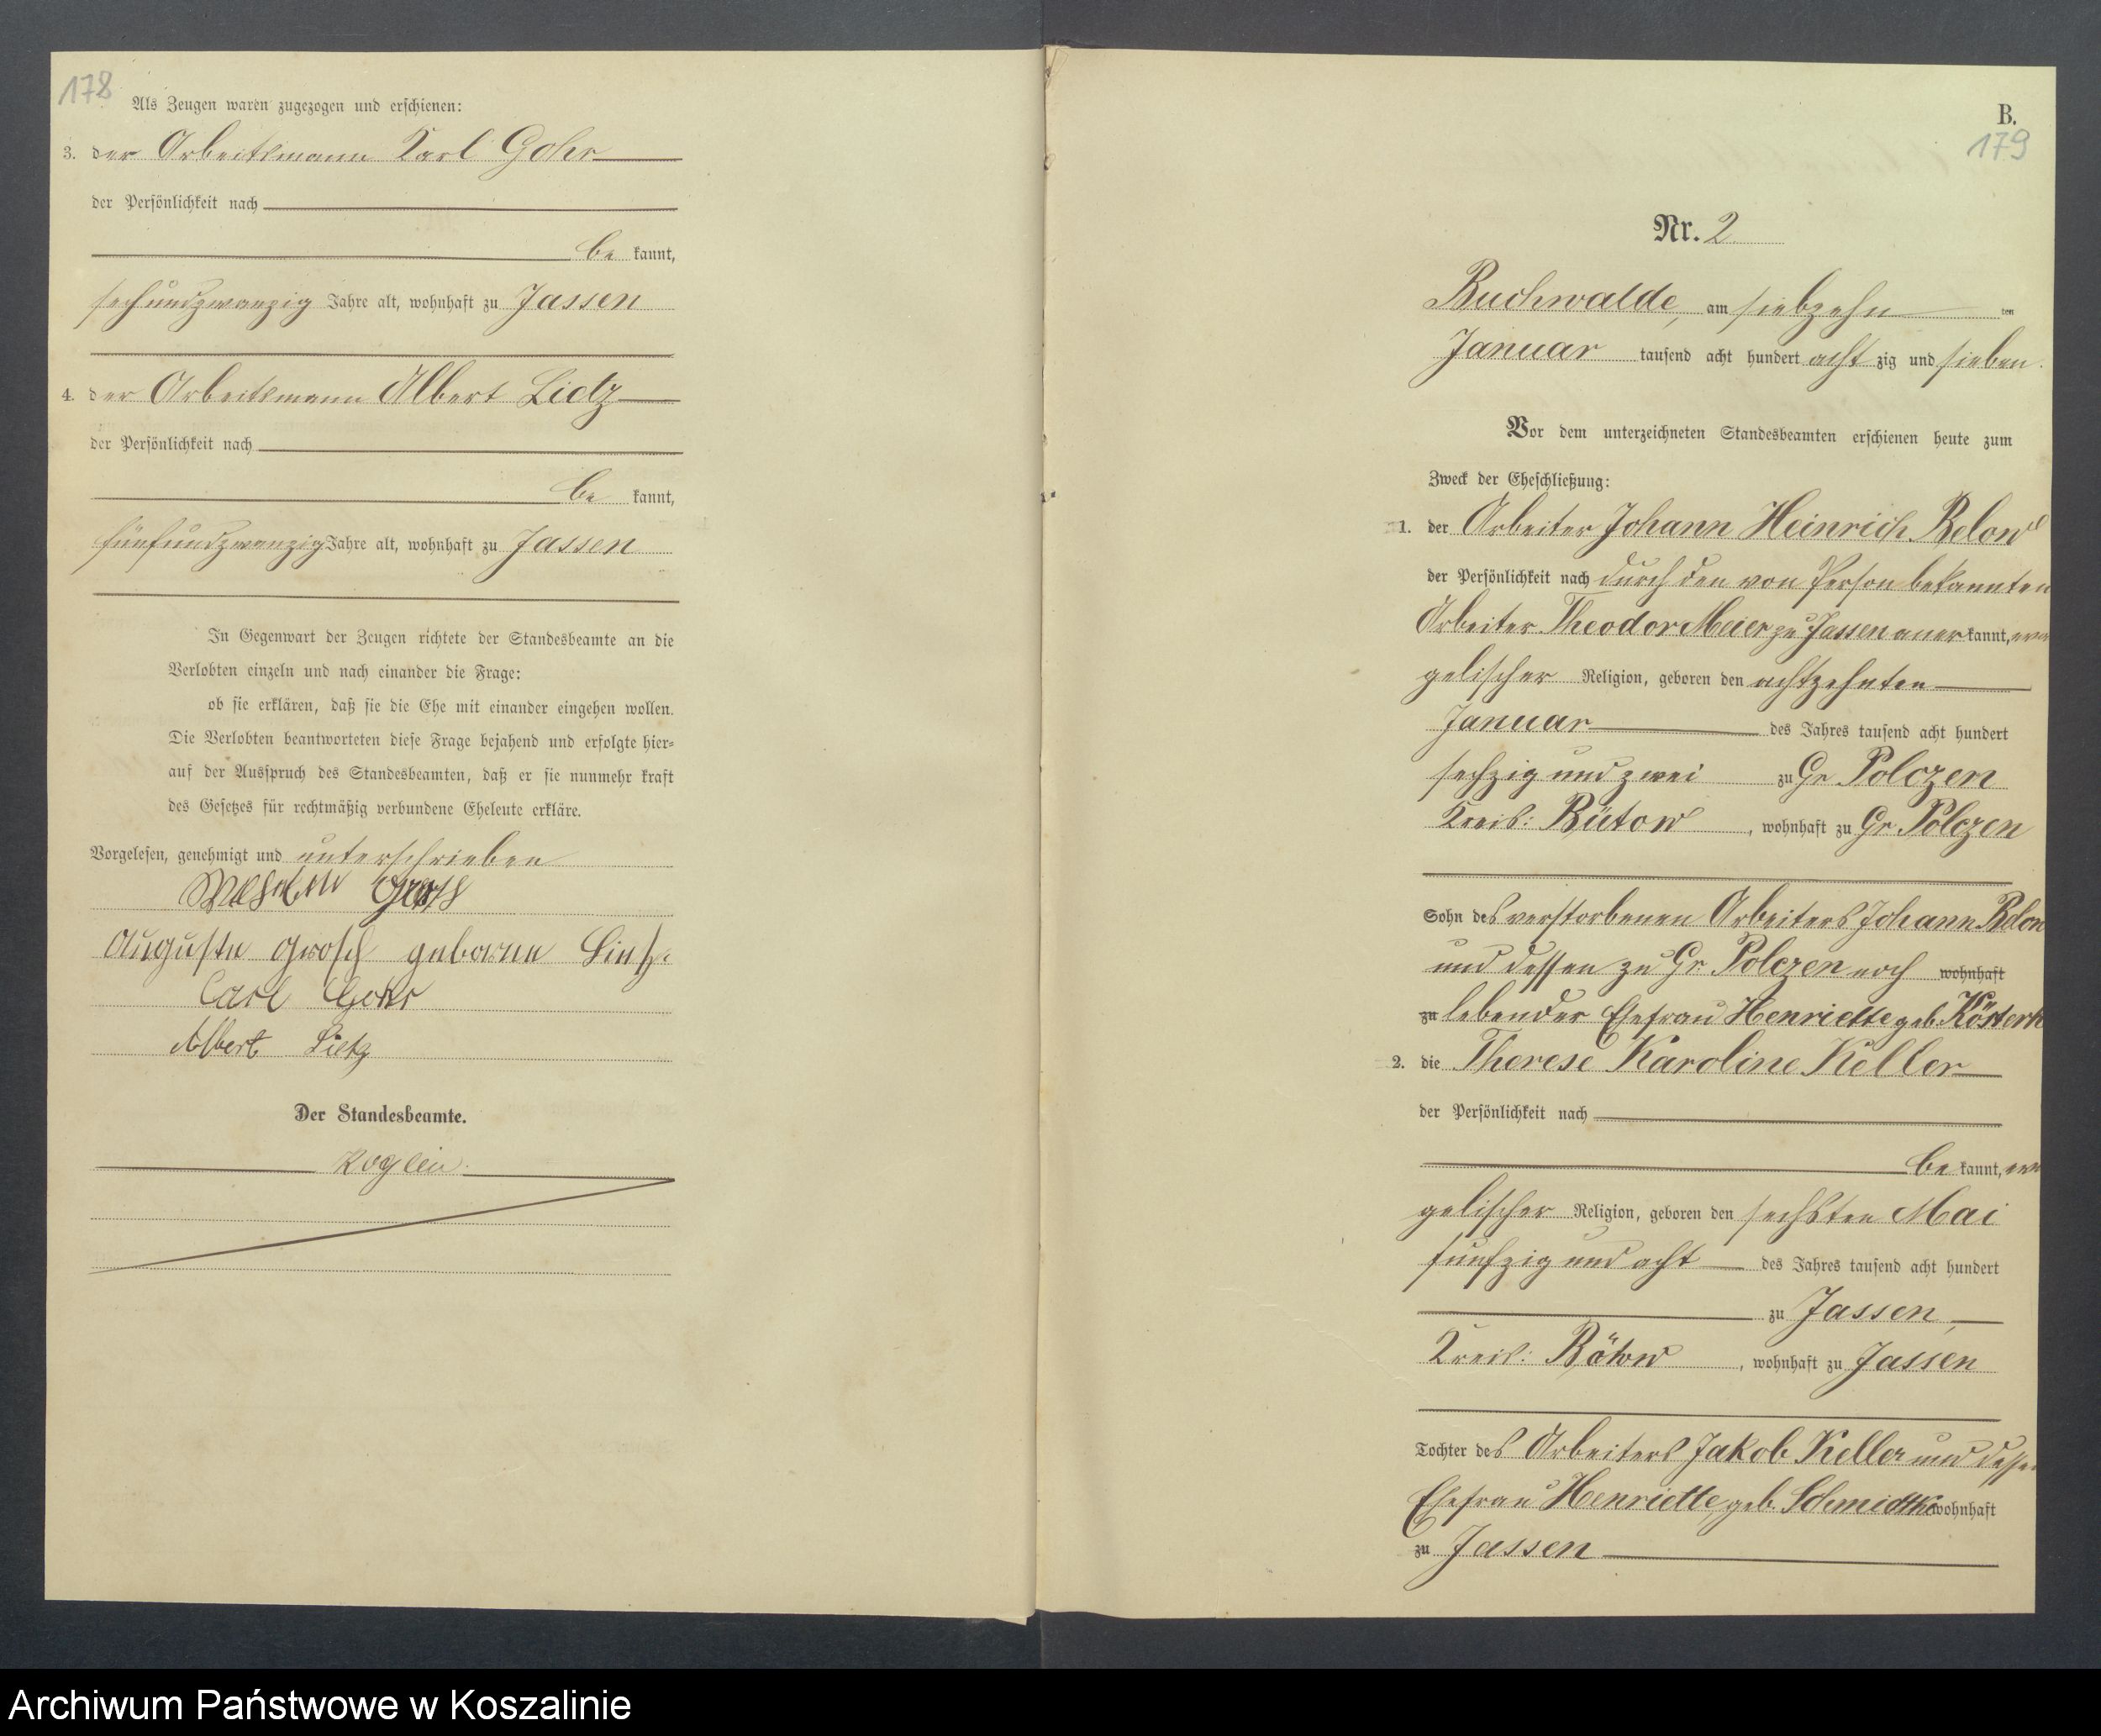 178
Als Zeugen waren zugezogen und erschienen:
3. der Arbeitsmann Karl Gohr
der Persönlichkeit nach
be kannt,
sechsundzwanzig Jahre alt, wohnhaft zu Jassen
4. der Arbeitsmann Albert Lietz
der Persönlichkeit nach
be kannt,
fünfundzwanzig Jahre alt, wohnhaft zu Jassen
In Gegenwart der Zeugen richtete der Standesbeamte an die
Verlobten einzeln und nach einander die Frage:
ob sie erklären, daß sie die Ehe mit einander eingehen wollen.
Die Verlobten beantworteten diese Frage bejahend und erfolgte hier-
auf der Ausspruch des Standesbeamten, daß er sie nunmehr kraft
des Gesetzes für rechtmäßig verbundene Eheleute erkläre.
Vorgelesen, genehmigt und unterschrieben
Auguste Grosch geborne Lietz.
Carl Gohr
Albert Lietz
Der Standesbeamte.
Koglin.
B.
179
Nr. 2
Buchwalde, am siebzehn ten
Januar tausend acht hundert acht zig und sieben.
Vor dem unterzeichneten Standesbeamten erschienen heute zum
Zweck der Eheschließung:
1. der Arbeiter Johann Heinrich Below
der Persönlichkeit nach durch den von Person bekannten
Arbeiter Theodor Meier zu Jassen aner kannt, evan
gelischer Religion, geboren den achtzehnten
Januar des Jahres tausend acht hundert
sechzig und zwei zu Gr Polczen
Kreis: Bütow, wohnhaft zu Gr Polczen
Sohn des verstorbenen Arbeiters Johann Below
und dessen zu Gr. Polczen noch wohnhaft
zu lebender Ehefrau Henriette geb.
2. die Therese Karoline Keller
der Persönlichkeit nach
be kannt, evan
gelischer Religion, geboren den sechsten Mai
funfzig und acht des Jahres tausend acht hundert
zu Jassen,
Kreis: Bütow, wohnhaft zu Jassen
Tochter des Arbeiters Jakob Keller und dessen
Ehefrau Henriette, geb. Schmidtke wohnhaft
zu Jassen
Archiwum Państwowe w Koszalinie